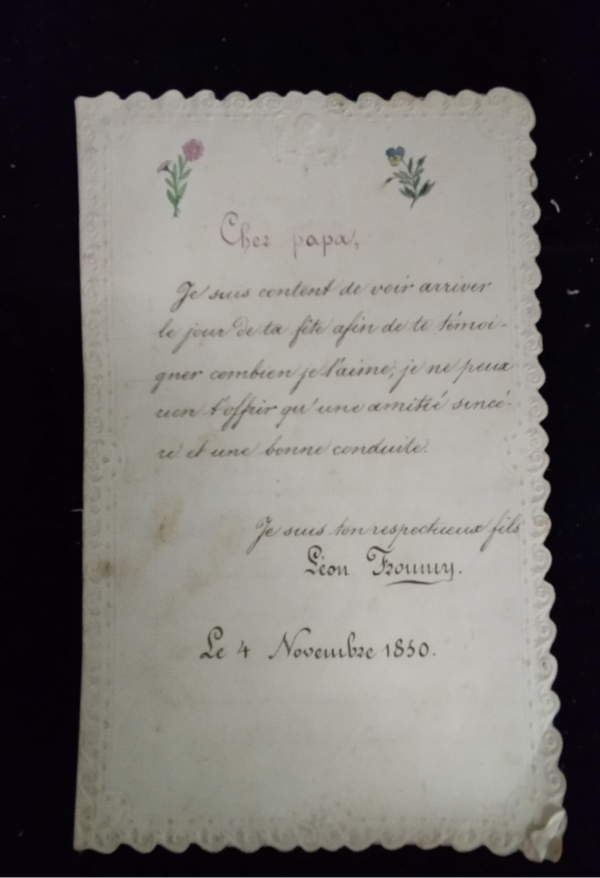 Cher papa,
Je suis content de voir arriver
le jour de ta fête afin de te témoi-
gner combien je t'aime, je ne peux
rien t'offrir qu'une amitié sincè-
re et une bonne conduite.
Je suis ton respectueux fils
Léon
Le 4 Novembre 1850.